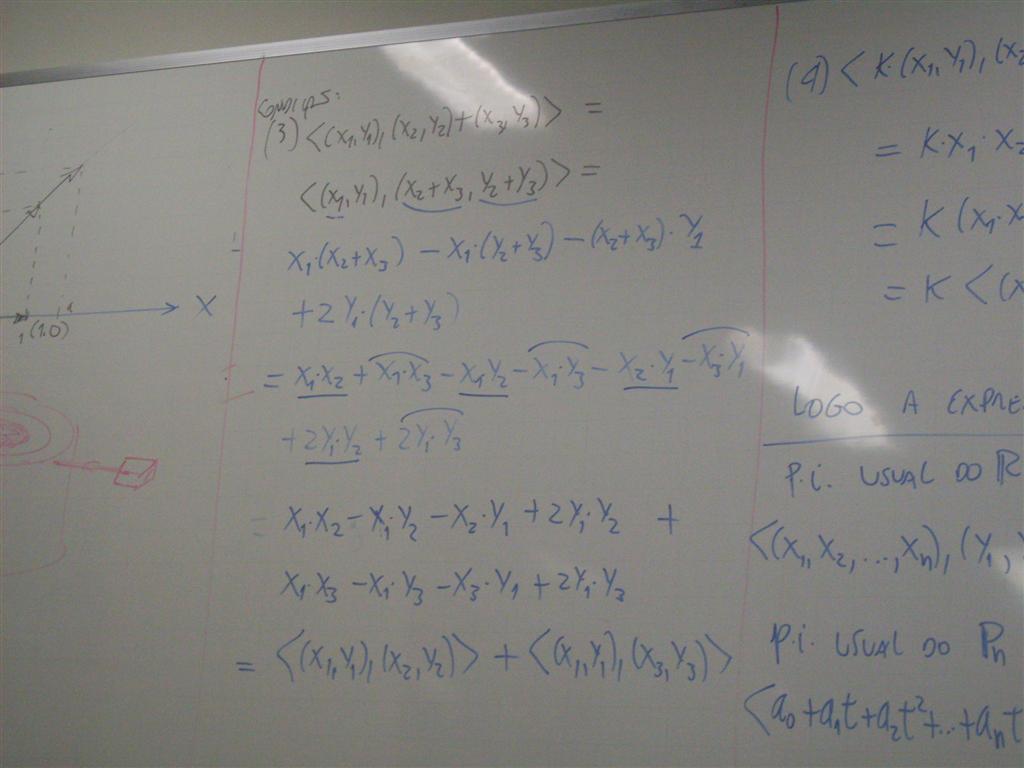 X
(1,0)
(3) <(x₁,y₁),(x₂,y₂)+(x₃,y₃)> =
<(x₁,y₁),(x₂+x₃,y₂+y₃)> =
x₁·(x₂+x₃) − x₁·(y₂+y₃) − (x₂+x₃)·y₁
+ 2y₁·(y₂+y₃)
= x₁·x₂ + x₁·x₃ − x₁y₂ − x₁·y₃ − x₂·y₁ − x₃·y₁
+ 2y₁·y₂ + 2y₁·y₃
= x₁·x₂ − x₁·y₂ − x₂·y₁ + 2y₁·y₂ +
x₁·x₃ − x₁·y₃ − x₃·y₁ + 2y₁·y₃
= <(x₁,y₁),(x₂,y₂)> + <(x₁,y₁),(x₃,y₃)>
(4) < K·(x₁,y₁),(x₂
= K·x₁·x₂
= K (x₁·x
= K <(x
LOGO A EXPRE
P.i. USUAL DO R
<(x₁,x₂,...,xₙ),(y₁,
P.i. USUAL DO Pₙ
<a₀+a₁t+a₂t²+..+aₙt